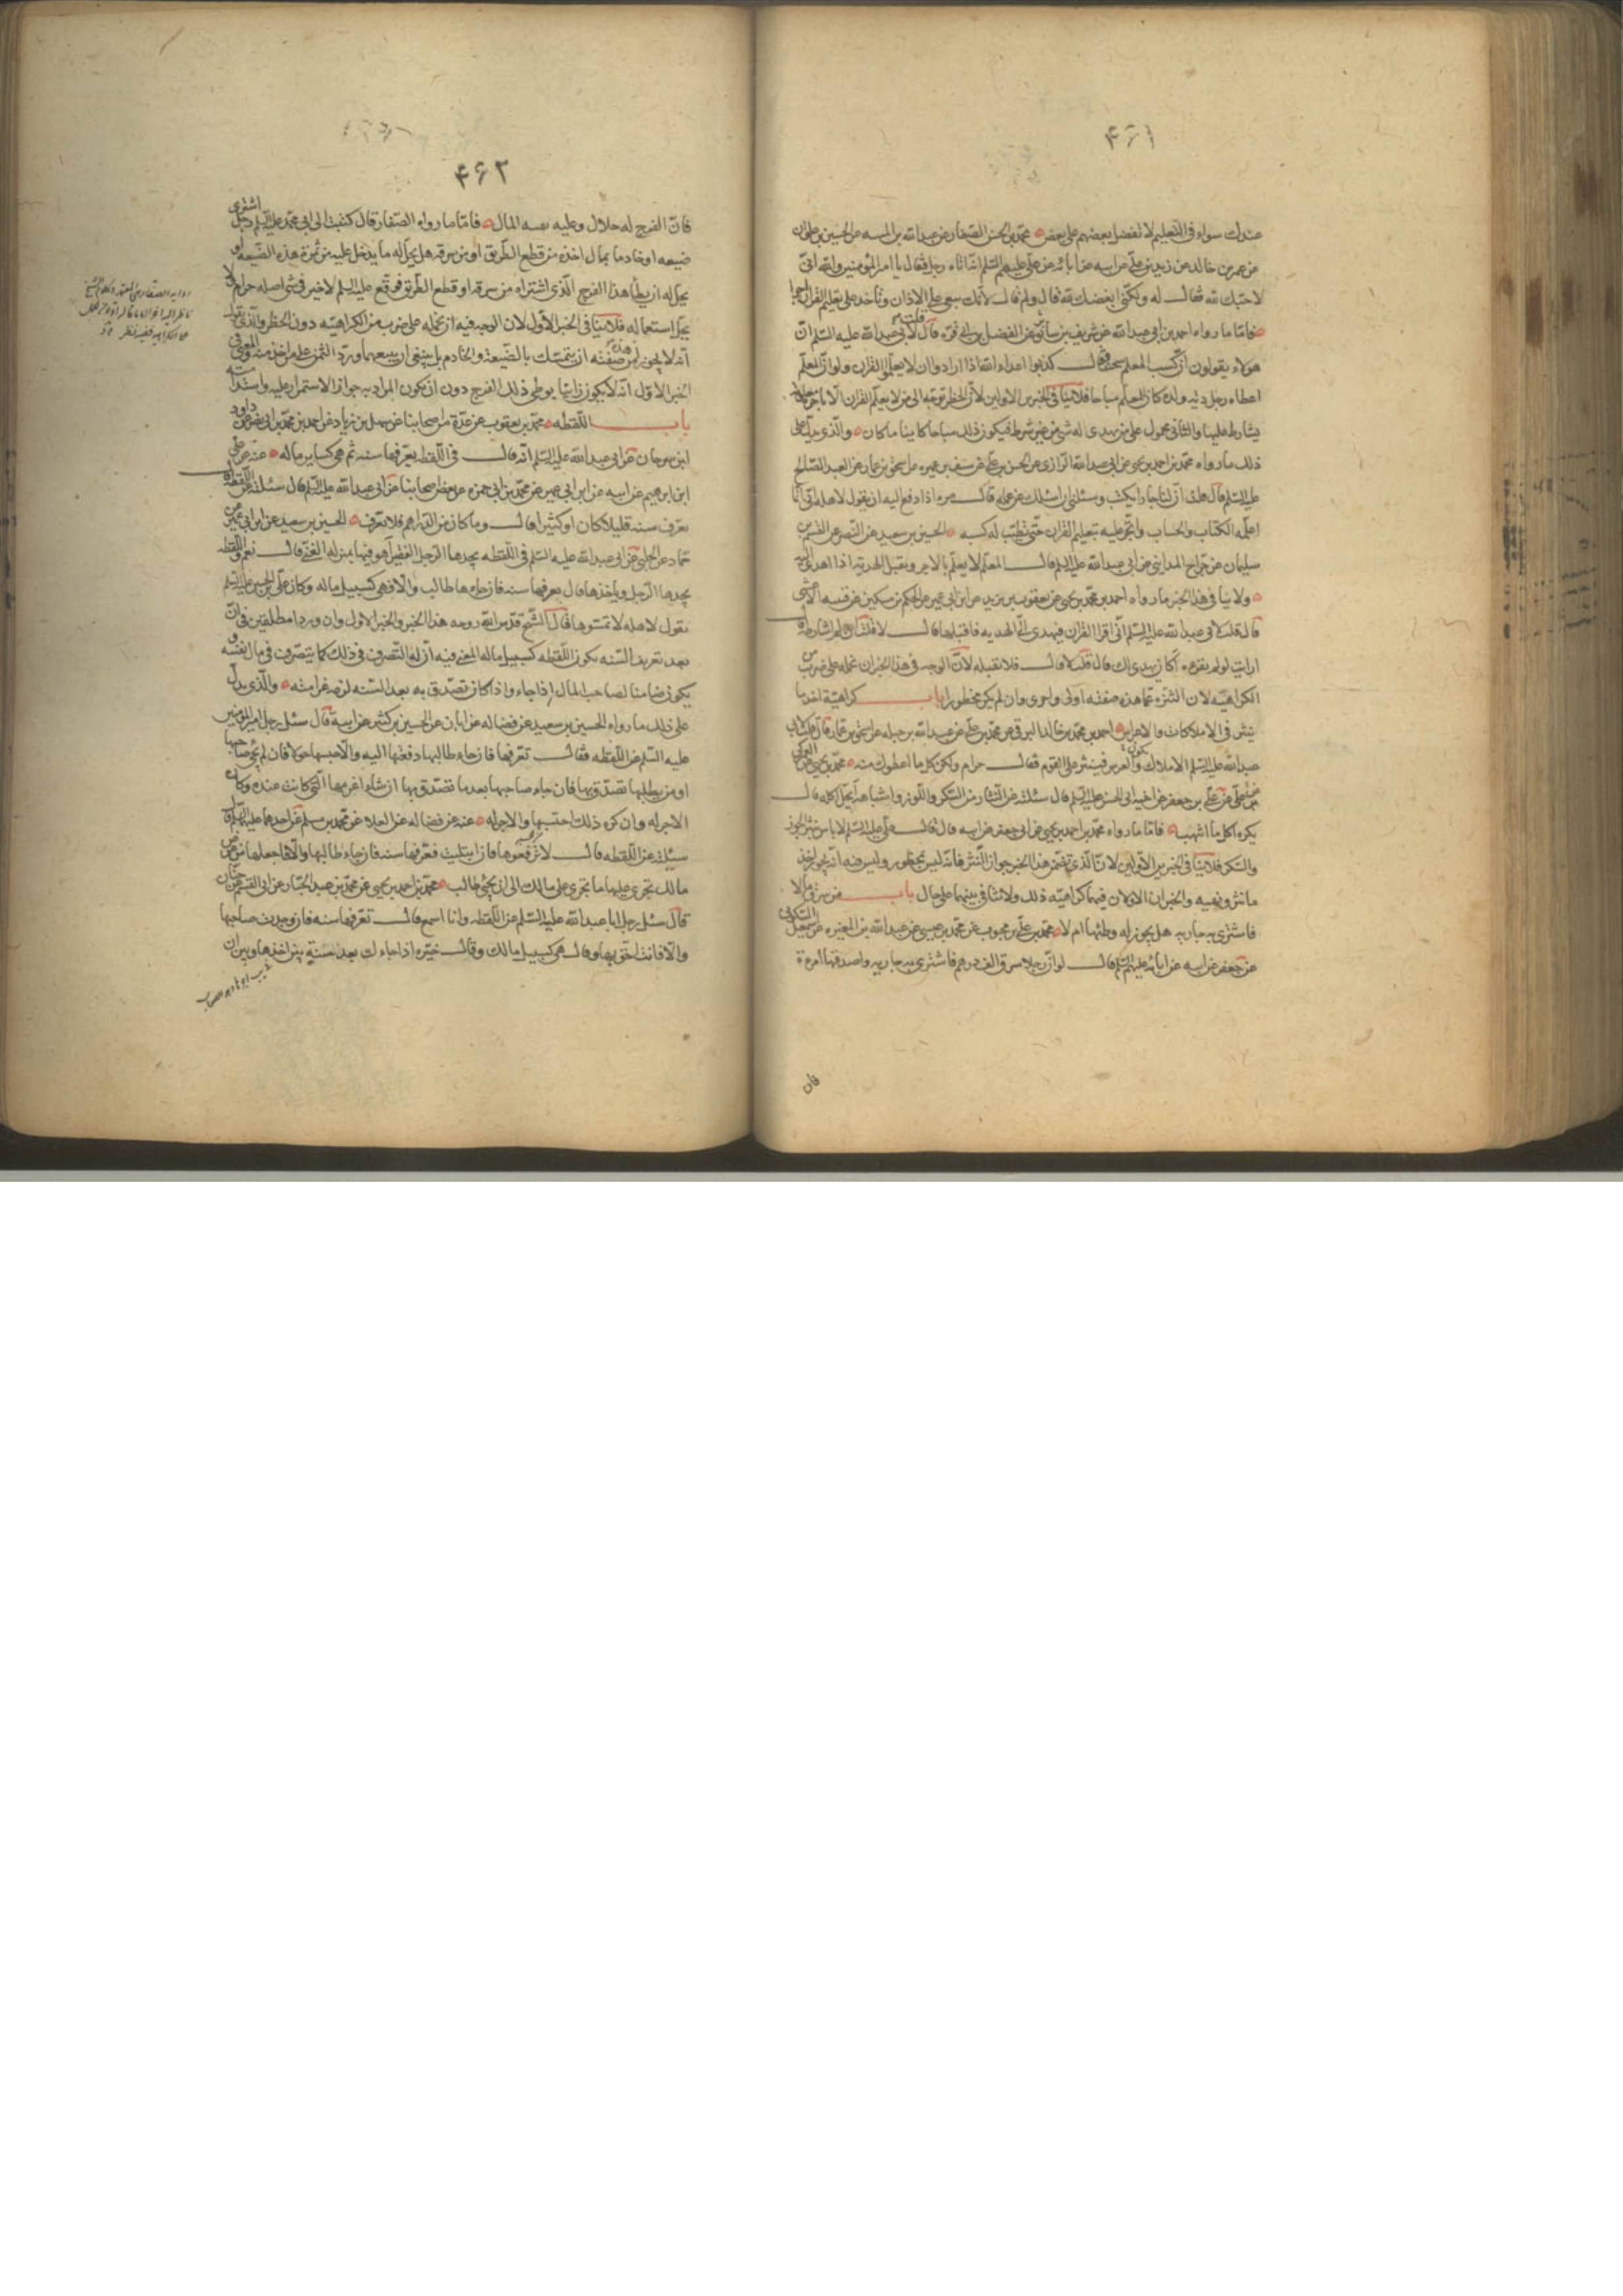 ۴۶۱
عندك سواء فى التعليم لا تفضل بعضهم على بعض محمد بن الحسن الصفار عن عبد الله بن المنبه عن الحسين بن علوان
عن عمرو بن خالد عن زيد بن على عن ابيه عن ابائه عن على عليهم السلم انه اتاه رجل فقال يا امير المؤمنين والله انى
لاحبك لله فقال له ولكنى ابغضك لله قال ولم قال لانك تبغى على الاذان وتأخذ على تعليم القران اجرا
فاما ما رواه احمد بن ابى عبد الله عن شريف بن سابق عن الفضل بن ابى قره قال قلت لابى عبد الله عليه السلم ان
هؤلاء يقولون ان كسب المعلم سحت فقال كذبوا اعداء الله اذا ارادوا ان لا يعلموا القران ولو ان المعلم
اعطاه رجل دية ولده كان للمعلم مباحا فلا ينافى الخبرين الاولين لان الحظر توجه الى من لا يعلم القران الا باجر معلوم
يشارط عليها والثانى محمول على من يهدى له شئ من غير شرط فيكون ذلك مباحا كائنا ما كان والذى يدل على
ذلك ما رواه محمد بن احمد بن يحيى عن ابى عبد الله الرازى عن الحسن بن على عن سيف بن عميره عن اسحق بن عمار عن العبد الصالح
عليه السلم قال قلت ان لنا جارا يكتب وسئلنى ان اسئلك عن عمله قال مره اذا دفع اليه ان يقول لاهله انى انما
اعلمه الكتاب والحساب واتجر عليه بتعليم القران حتى تطيب له كسبه الحسين بن سعيد عن النضر عن القسم بن
سليمان عن جراح المداينى عن ابى عبد الله عليه السلم قال المعلم لا يعلم بالاجر ويقبل الهدية اذا اهدى اليه
ولا ينافى هذا الخبر ما رواه احمد بن محمد بن يحيى عن يعقوب بن يزيد عن ابن ابى عمير عن الحكم بن مسكين عن قتيبه الاعشى
قال قلت لابى عبد الله عليه السلم انى اقرا القران فيهدى الى الهديه فاقبلها قال لا قلت ان لم اشارطه قال
ارايت لو لم تقرءه اكان يهدى لك قال قلت لا قال فلا تقبله لان الوجه فى هذا الخبر ان نحمله على ضرب من
الكراهيه لان التنزه عما هذه صفته اولى واحرى وان لم يكن محظورا باب كراهية اخذ ما
ينثر فى الاملاكات والاعراس احمد بن محمد بن خالد البرقى عن محمد بن على عن عبد الله بن جبله عن اسحق بن عمار قال قلت لابى
عبد الله عليه السلم الاملاك يكون والعرس فينثر على القوم فقال حرام ولكن كل ما اعطوك منه محمد بن يحيى عن العمركى
عن على بن جعفر عن اخيه ابى الحسن عليه السلم قال سئلته عن النثار من السكر واللوز واشباهه ايحل اكله قال
يكره اكل ما انتهب فاما ما رواه محمد بن احمد بن يحيى عن ابى جعفر عن ابيه قال قال على عليه السلم لا باس بنثر الجوز
والسكر فلا ينافى الخبرين الاولين لان الذى تضمن هذا الخبر جواز النثر فانه ليس بمحظور وليس فيه انه يجوز اخذ
ما نثر ونهبه والخبران الاولان فيهما كراهيه ذلك ولا تنافى بينهما على حال باب من سرق مالا
فاشترى به جاريه هل يجوز له وطئها ام لا محمد بن على بن محبوب عن محمد بن عيسى عن عبد الله بن المغيره عن السكونى
عن جعفر عن ابيه عن ابائه عليهم السلم قال لو ان رجلا سرق الف درهم فاشترى به جاريه واصدقها امرءة
فان
۴۶۲
فان الفرج له حلال وعليه تبعه المال فاما ما رواه الصفار قال كتبت الى ابى محمد عليه السلم رجل اشترى
ضيعه او خادما بمال اخذه من قطع الطريق او من سرقه هل يحل له ما يدخل عليه من ثمرة هذه الضيعه او
يحل له ان يطأ هذا الفرج الذى اشتراه من سرقه او قطع الطريق فوقع عليه السلم لا خير فى شئ اصله حرام ولا
يحل استعماله فلا ينافى الخبر الاول لان الوجه فيه ان نحمله على ضرب من الكراهيه دون الحظر والذى نقول
انه لا يجوز لمن هذه صفته ان يتمسك بالضيعة والخادم بل ينبغى ان يبيعهما ويرد الثمن على من اخذ منه والمعنى فى
الخبر الاول انه لا يكون زانيا بوطى ذلك الفرج دون ان يكون المراد به جواز الاستمرار عليه واستدامته
باب اللقطه محمد بن يعقوب عن عدة من اصحابنا عن سهل بن زياد عن احمد بن محمد بن ابى نصر عن داود
ابن سرحان عن ابى عبد الله عليه السلم انه قال فى اللقطه يعرفها سنه ثم هى كساير ماله عنه عن على
ابن ابرهيم عن ابيه عن ابن ابى عمير عن محمد بن ابى حمزه عن بعض اصحابنا عن ابى عبد الله عليه السلم قال سئلته عن اللقطه قال
تعرف سنه قليلا كان او كثيرا قال وما كان دون الدراهم فلا تعرف الحسين بن سعيد عن ابن ابى عمير عن
حماد عن الحلبى عن ابى عبد الله عليه السلم فى اللقطه يجدها الرجل الفقير أهو فيها بمنزله الغنى قال نعم واللقطه
يجدها الرجل وياخذها قال يعرفها سنه فان جاء لها طالب والا فهى كسبيل ماله وكان على بن الحسين عليه السلم
يقول لاهله لا تمسوها قال الشيخ قدس الله روحه هذا الخبر والخبر الاول وان وردا مطلقين فى ان
بعد تعريف السنه يكون اللقطه كسبيل ماله المعنى فيه ان له التصرف فى ذلك كما يتصرف فى مال نفسه و
يكون ضامنا لصاحب المال اذا جاء واذا كان تصدق به بعد السنه لزمه غرامته والذى يدل
على ذلك ما رواه الحسين بن سعيد عن فضاله عن ابان عن الحسين بن كثير عن ابيه قال سئل رجل امير المؤمنين
عليه السلم عن اللقطه فقال تعرفها فان جاء طالبها دفعها اليه والا حبسها حولا فان لم يجئ صاحبها
او من يطلبها تصدق بها فان جاء صاحبها بعد ما تصدق بها ان شاء اغرمها الذى كانت عنده وكان
الاجر له وان كره ذلك احتسبها والاجر له عنه عن فضاله عن العلاء عن محمد بن مسلم عن احدهما عليهما السلم قال
سئلته عن اللقطه قال لا ترفعوها فان ابتليت فعرفها سنه فان جاء طالبها والا فاجعلها فى عرض
مالك تجرى عليها ما تجرى على مالك الى ان يجئ طالب محمد بن احمد بن يحيى عن محمد بن عبد الجبار عن ابى القسم عن حنان
قال سئل رجل ابا عبد الله عليه السلم عن اللقطه وانا اسمع قال تعرفها سنه فان وجدت صاحبها
والا فانت احق بها وقال هى كسبيل مالك وقال خيره اذا جاءك بعد سنة بين اجرها وبين ان